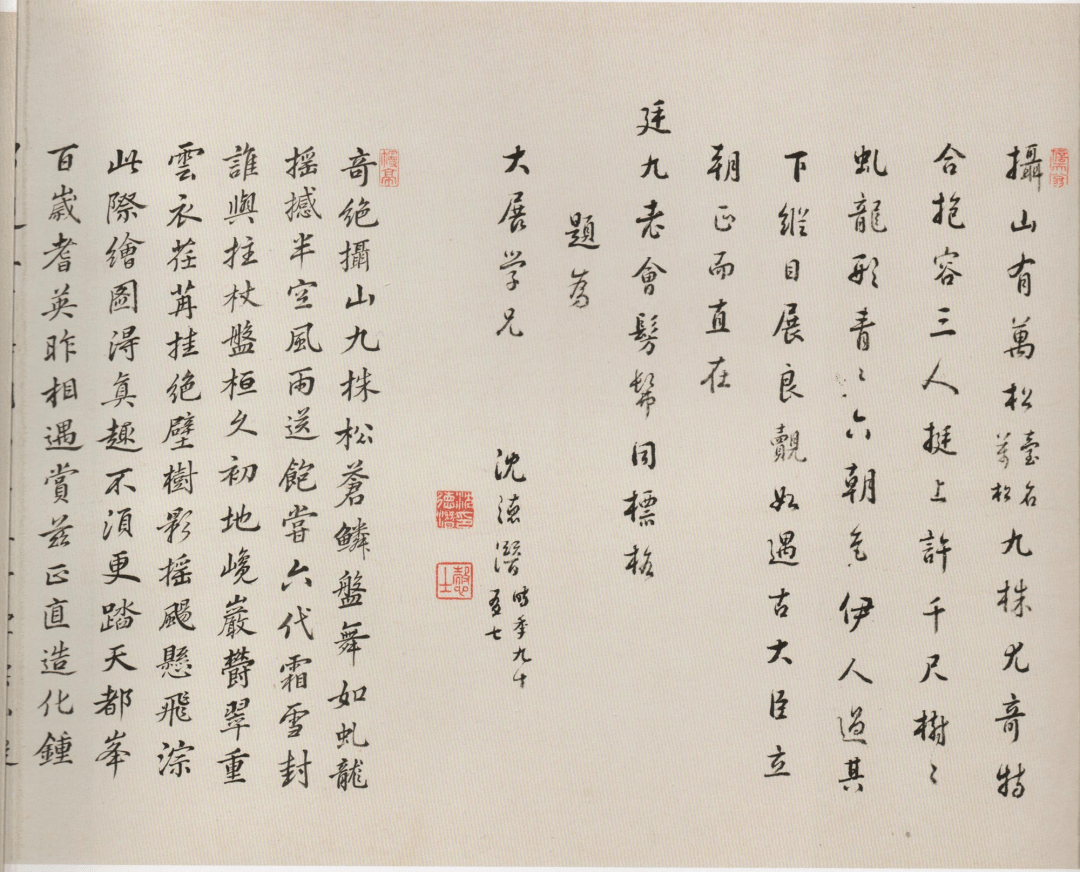 攝山有萬松臺名萬松九株尤奇特
合抱容三人挺上許千尺樹〻
虬龍形青〻六朝色伊人過其
下縱目展良覿如遇古大臣立
朝正而直在
廷九老會髣髴同標格
題為
大展学兄
沈德潛時年九十有七
沈德潛印
慤士
奇絕攝山九株松蒼鱗盤舞如虬龍
摇撼半空風雨送飽嘗六代霜雪封
誰與拄杖盤桓久初地巉巖欝翠重
雲衣荏苒挂絕壁樹影摇颺懸飛淙
此際繪圖淂真趣不湏更踏天都峯
百歲耆英昨相遇賞兹正直造化鍾